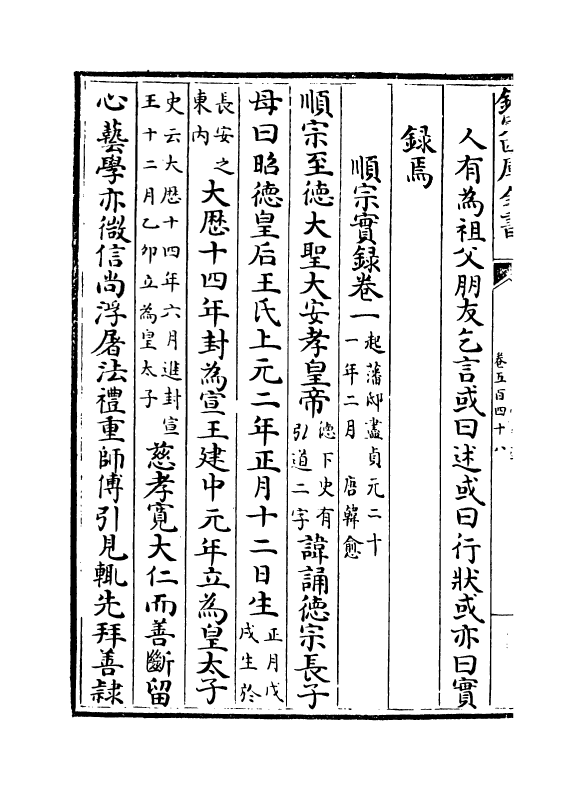 欽定四庫全書
卷五百四十八
人有為祖父朋友乞言或曰述或曰行狀或亦曰實
録焉
順宗實録卷一起藩邸盡貞元二十一年二月 唐韓愈
順宗至徳大聖大安孝皇帝徳下史有引道二字諱誦徳宗長子
母曰昭徳皇后王氏上元二年正月十二日生正月戊戌生於
長安之東内大歴十四年封為宣王建中元年立為皇太子
史云大歴十四年六月進封宣王十二月乙卯立為皇太子慈孝寛大仁而善斷留
心藝學亦微信尚浮屠法禮重師傅引見輒先拜善隷